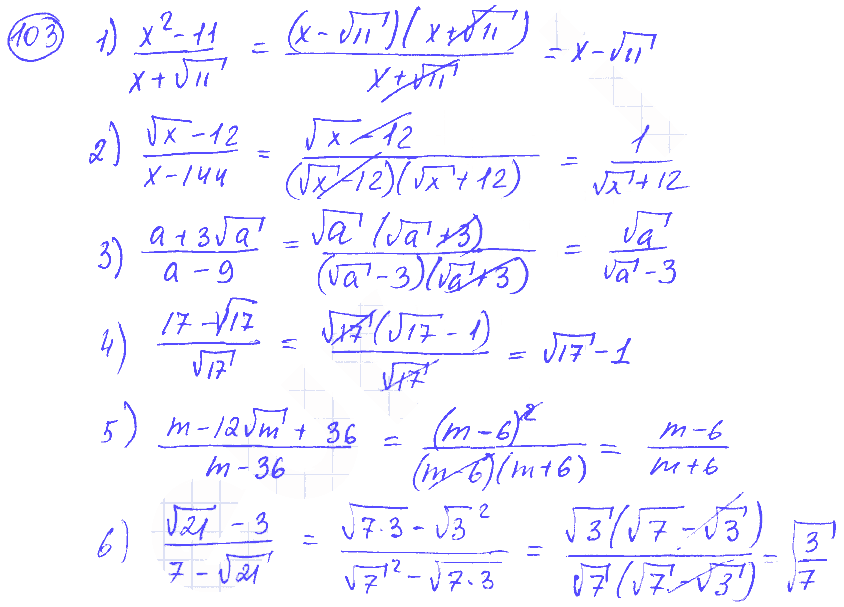 103 1) (x² - 11)/(x + √11) = ((x - √11)(x + √11))/(x + √11) = x - √11
2) (√x - 12)/(x - 144) = (√x - 12)/((√x - 12)(√x + 12)) = 1/(√x + 12)
3) (a + 3√a)/(a - 9) = (√a (√a + 3))/((√a - 3)(√a + 3)) = √a/(√a - 3)
4) (17 - √17)/√17 = (√17 (√17 - 1))/√17 = √17 - 1
5) (m - 12√m + 36)/(m - 36) = (m - 6)²/((m - 6)(m + 6)) = (m - 6)/(m + 6)
6) (√21 - 3)/(7 - √21) = (√7·3 - √3²)/(√7² - √7·3) = (√3 (√7 - √3))/(√7 (√7 - √3)) = √(3/7)